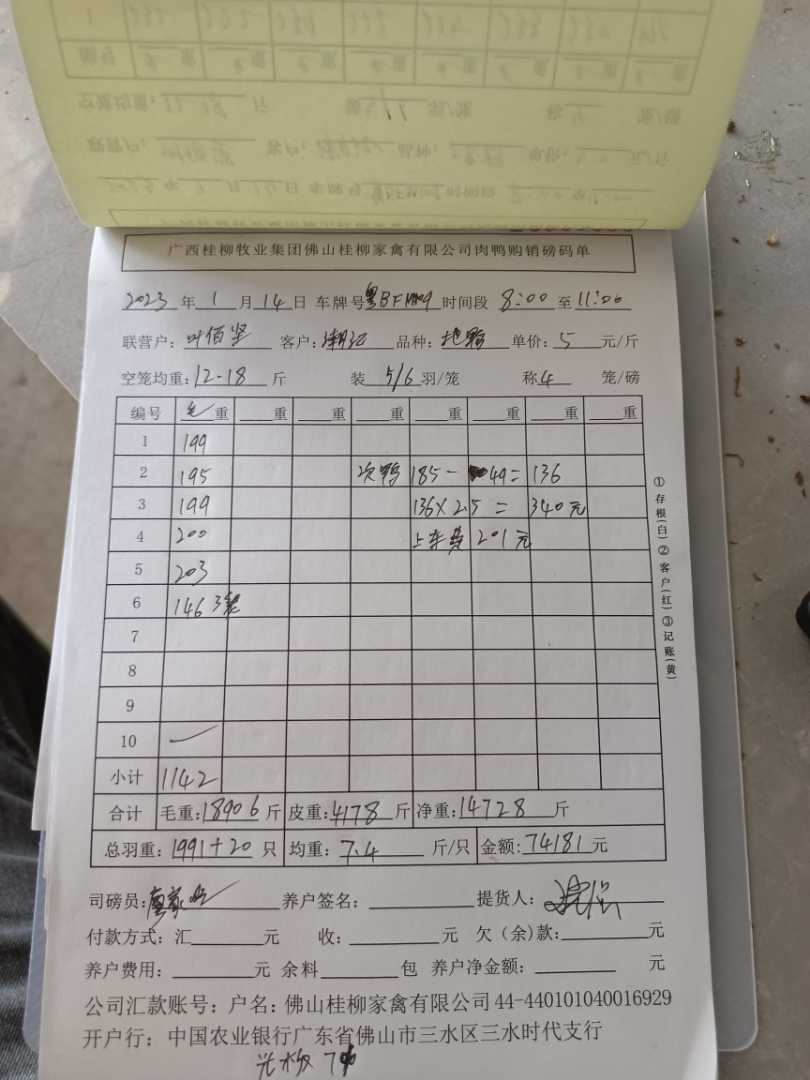 广西桂柳牧业集团佛山桂柳家禽有限公司肉鸭购销磅码单
2023 年 1 月 14 日 车牌号 粤BF 时间段 8:00 至 11:00
联营户: 叶佰坚 客户: 品种: 单价: 5 元/斤
空笼均重: 12-18 斤 装 5/6 羽/笼 称 4 笼/磅
编号 毛重 重 重 重 重 重 重 重
1 199
2 195 次鸭 185- 49= 136
3 199 136×2.5 = 340元
4 200 上车费 201元
5 203
6 146 3笼
7
8
9
10
小计 1142
合计 毛重: 18906 斤 皮重: 4178 斤 净重: 14728 斤
总羽重: 1991+20 只 均重: 7.4 斤/只 金额: 74181 元
司磅员: 养户签名: 提货人:
付款方式: 汇 元 收: 元 欠(余)款: 元
养户费用: 元 余料 包 养户净金额: 元
公司汇款账号: 户名: 佛山桂柳家禽有限公司 44-440101040016929
开户行: 中国农业银行广东省佛山市三水区三水时代支行
①存根(白)②客户(红)③记账(黄)